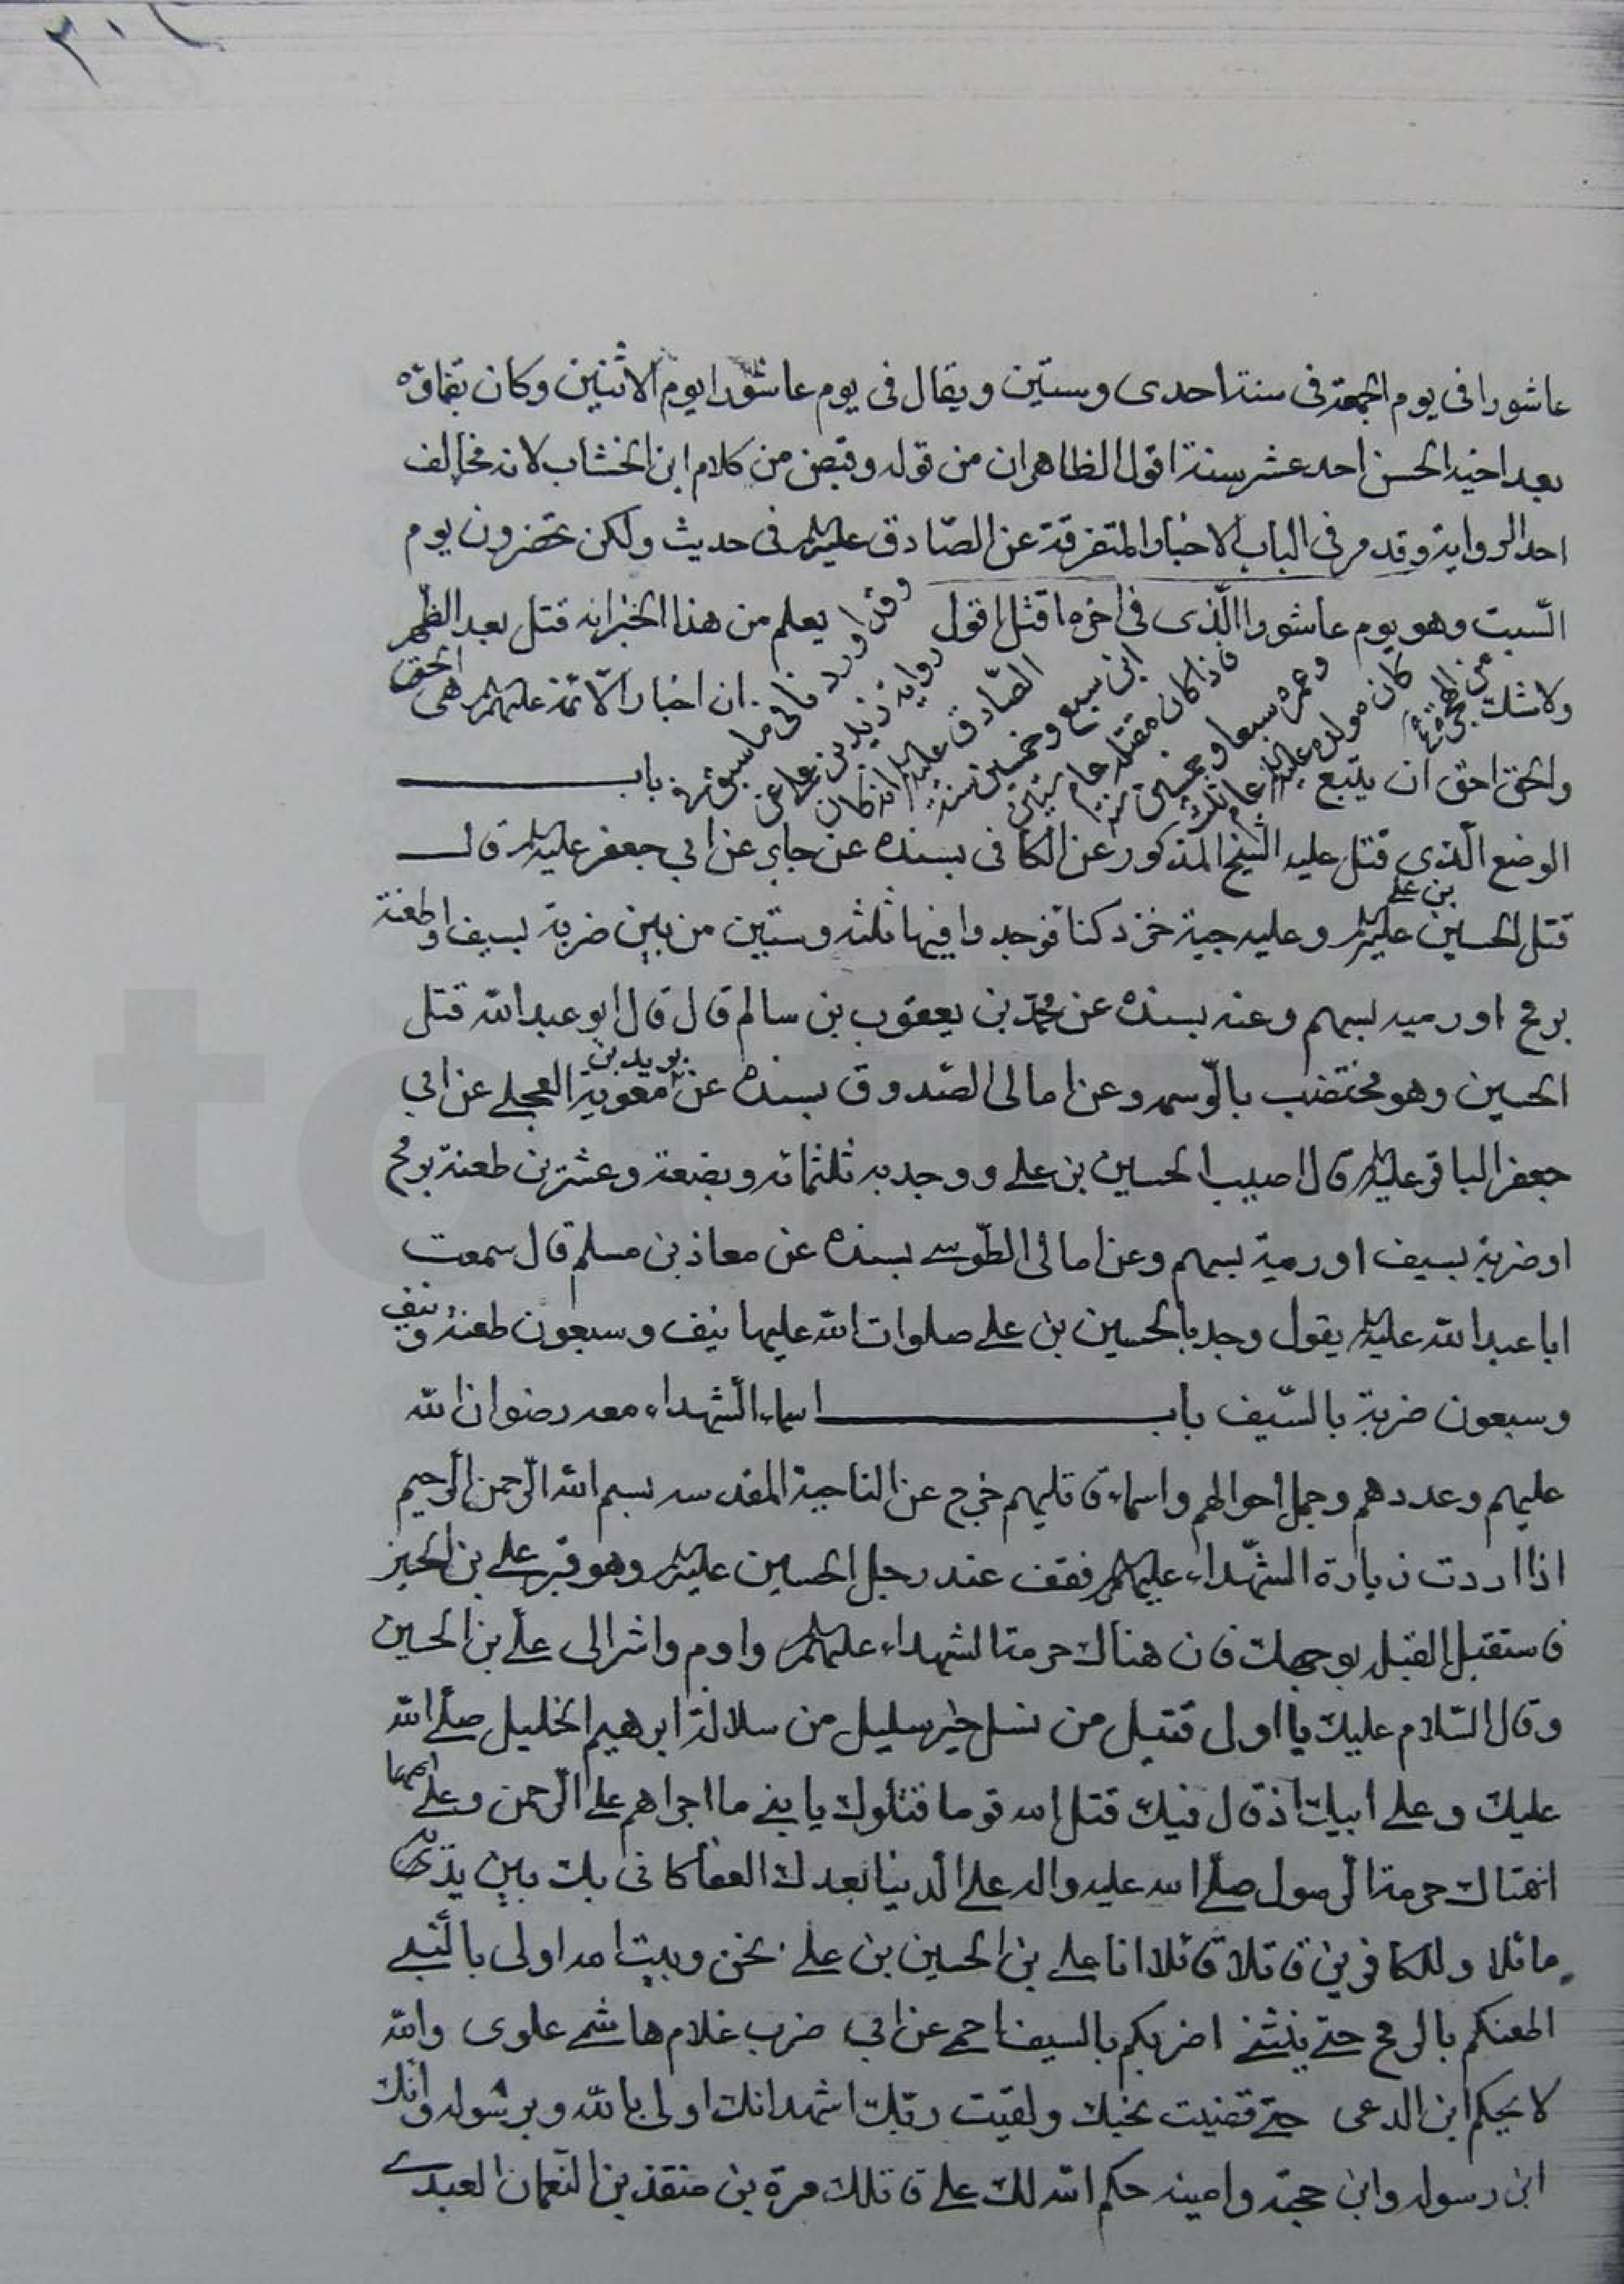 ٣٠١
عاشورا في يوم الجمعة في سنة احدى وستين ويقال في يوم عاشورا يوم الاثنين وكان بقاؤه
بعد اخيه الحسن احد عشر سنة اقول الظاهر ان من قوله وقبض من كلام ابن الخشاب لانه مخالف
احد الرواية وقد مر في الباب الاخبار المتفرقة عن الصّادق عليه السلم في حديث ولكن تحضرون يوم
السّبت وهو يوم عاشورا الّذي في اخره ما قتل اقول يعلم من هذا الخبر انه قتل بعد الظهر
ولا شك ان اخبار الائمة عليهم السلم هي الحق
والحق احق ان يتبع باب
وقد ورد
رواية زيد بن علي عن
الصّادق عليه السلم انه كان
ابن سبع وخمسين سنة
فاذا كان مقتله عام ستين
وعمره سبعا وخمسين سنة
كان مولده عليه السلم عام ثلث
من الهجرة
الوضع الّذي قتل عليه الشيخ المذكور عن الكافي بسنده عن جابر عن ابي جعفر عليه السلم قال
قتل الحسين بن علي عليه السلم وعليه جبة خز دكنا فوجدوا فيها ثلثه وستين من بين ضربة بسيف او طعنة
برمح او رميه بسهم وعنه بسنده عن محمّد بن يعقوب بن سالم قال قال ابو عبد الله قتل
الحسين وهو مختضب بالوّسمه وعن امالي الصّدوق بسنده عن بريد بن معوية العجلي عن ابي
جعفر الباقر عليه السلم قال اصيب الحسين بن علي ووجد به ثلثمائه وبضعة وعشرين طعنة برمح
او ضربة بسيف او رمية بسهم وعن امالي الطّوسي بسنده عن معاذ بن مسلم قال سمعت
ابا عبد الله عليه السلم يقول وجد بالحسين بن علي صلوات الله عليهما نيف وسبعون طعنة ونيف
وسبعون ضربة بالسّيف باب اسماء الشّهداء معه رضوان الله
عليهم وعددهم وجمل احوالهم واسماء قاتليهم خرج عن الناحية المقدسه بسم الله الرّحمن الرّحيم
اذا اردت زيارة الشّهداء عليهم السلم فقف عند رجل الحسين عليه السلم وهو قبر علي بن الحسين
فاستقبل القبله بوجهك فان هناك حرمة الشهداء عليهم السلم واوم واشر الى علي بن الحسين
وقال السّلام عليك يا اول قتيل من نسل خير سليل من سلالة ابرهيم الخليل صلّى الله
عليك وعلى ابيك اذ قال فيك قتل الله قوما قتلوك يا بني ما اجراهم على الرّحمن وعلى
انتهاك حرمة الرّسول صلّى الله عليه واله على الدّنيا بعدك العفا كاني بك بين يديه
ماثلا وللكافرين قاتلا قائلا انا علي بن الحسين بن علي نحن وبيت الله اولى بالنّبي
اطعنكم بالرمح حتى ينثني اضربكم بالسيف احمي عن ابي ضرب غلام هاشمي علوي والله
لا يحكم ابن الدعي حتى قضيت نحبك ولقيت ربّك اشهد انك اولى بالله وبرسوله وانك
ابن رسوله وابن حجته وامينه حكم الله لك على قاتلك مرة بن منقذ بن النّعمان العبدي